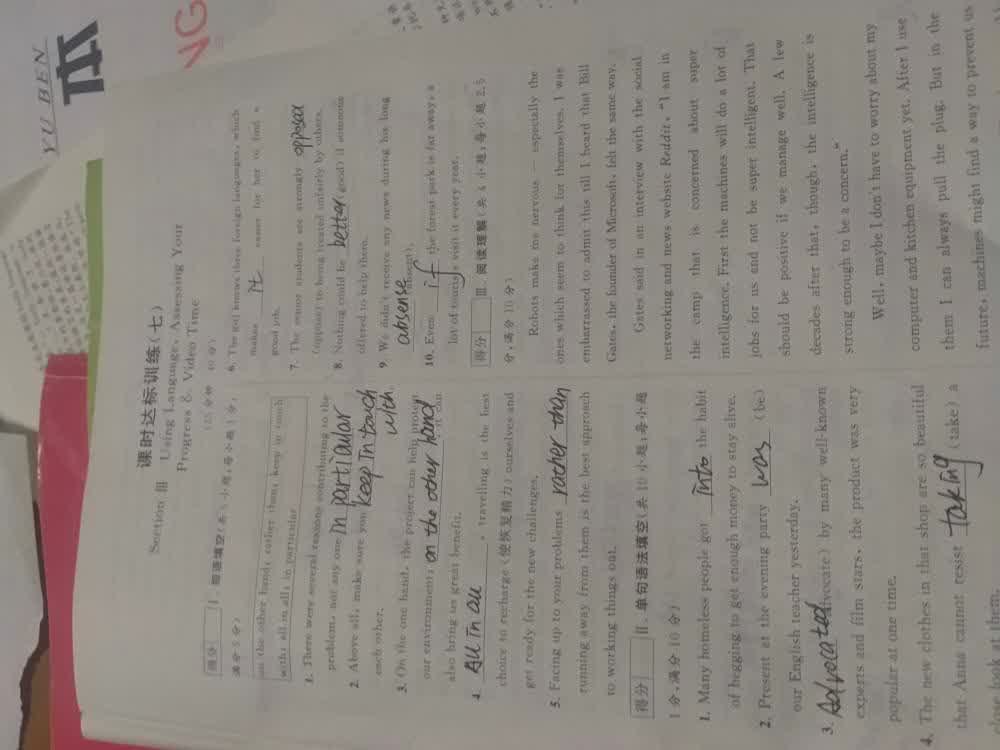 YU BEN
本
NG
课时达标训练(七)
Section Ⅲ Using Language, Assessing Your
Progress & Video Time
得分 Ⅰ. 短语填空(共5小题;每小题1分,
满分5分)
on the other hand; rather than; keep in touch
with; all in all; in particular
1. There were several reasons contributing to the
problem, not any one In partiaular
2. Above all, make sure you keep In touch
with each other.
3. On the one hand, the project can help protect
our environment; on the other hand it can
also bring us great benefit.
4. All in all, travelling is the best
choice to recharge (使恢复精力) ourselves and
get ready for the new challenges.
5. Facing up to your problems rather than
running away from them is the best approach
to working things out.
得分 Ⅱ. 单句语法填空(共10小题;每小题
1分,满分10分)
1. Many homeless people got into the habit
of begging to get enough money to stay alive.
2. Present at the evening party was (be)
our English teacher yesterday.
3. Advocated (advocate) by many well-known
experts and film stars, the product was very
popular at one time.
4. The new clothes in that shop are so beautiful
that Anna cannot resist taking (take) a
look at them.
6. The girl knows three foreign languages, which
makes it easier for her to find a
good job.
7. The senior students are strongly opposed
(oppose) to being treated unfairly by others.
8. Nothing could be better (good) if someone
offered to help them.
9. We didn't receive any news during his long
absense (absent).
10. Even if the forest park is far away, a
lot of tourists visit it every year.
得分 Ⅲ. 阅读理解(共4小题;每小题2.5
分,满分10分)
Robots make me nervous — especially the
ones which seem to think for themselves. I was
embarrassed to admit this till I heard that Bill
Gates, the founder of Microsoft, felt the same way.
Gates said in an interview with the social
networking and news website Reddit, "I am in
the camp that is concerned about super
intelligence. First the machines will do a lot of
jobs for us and not be super intelligent. That
should be positive if we manage well. A few
decades after that, though, the intelligence is
strong enough to be a concern."
Well, maybe I don't have to worry about my
computer and kitchen equipment yet. After I use
them I can always pull the plug. But in the
future, machines might find a way to prevent us